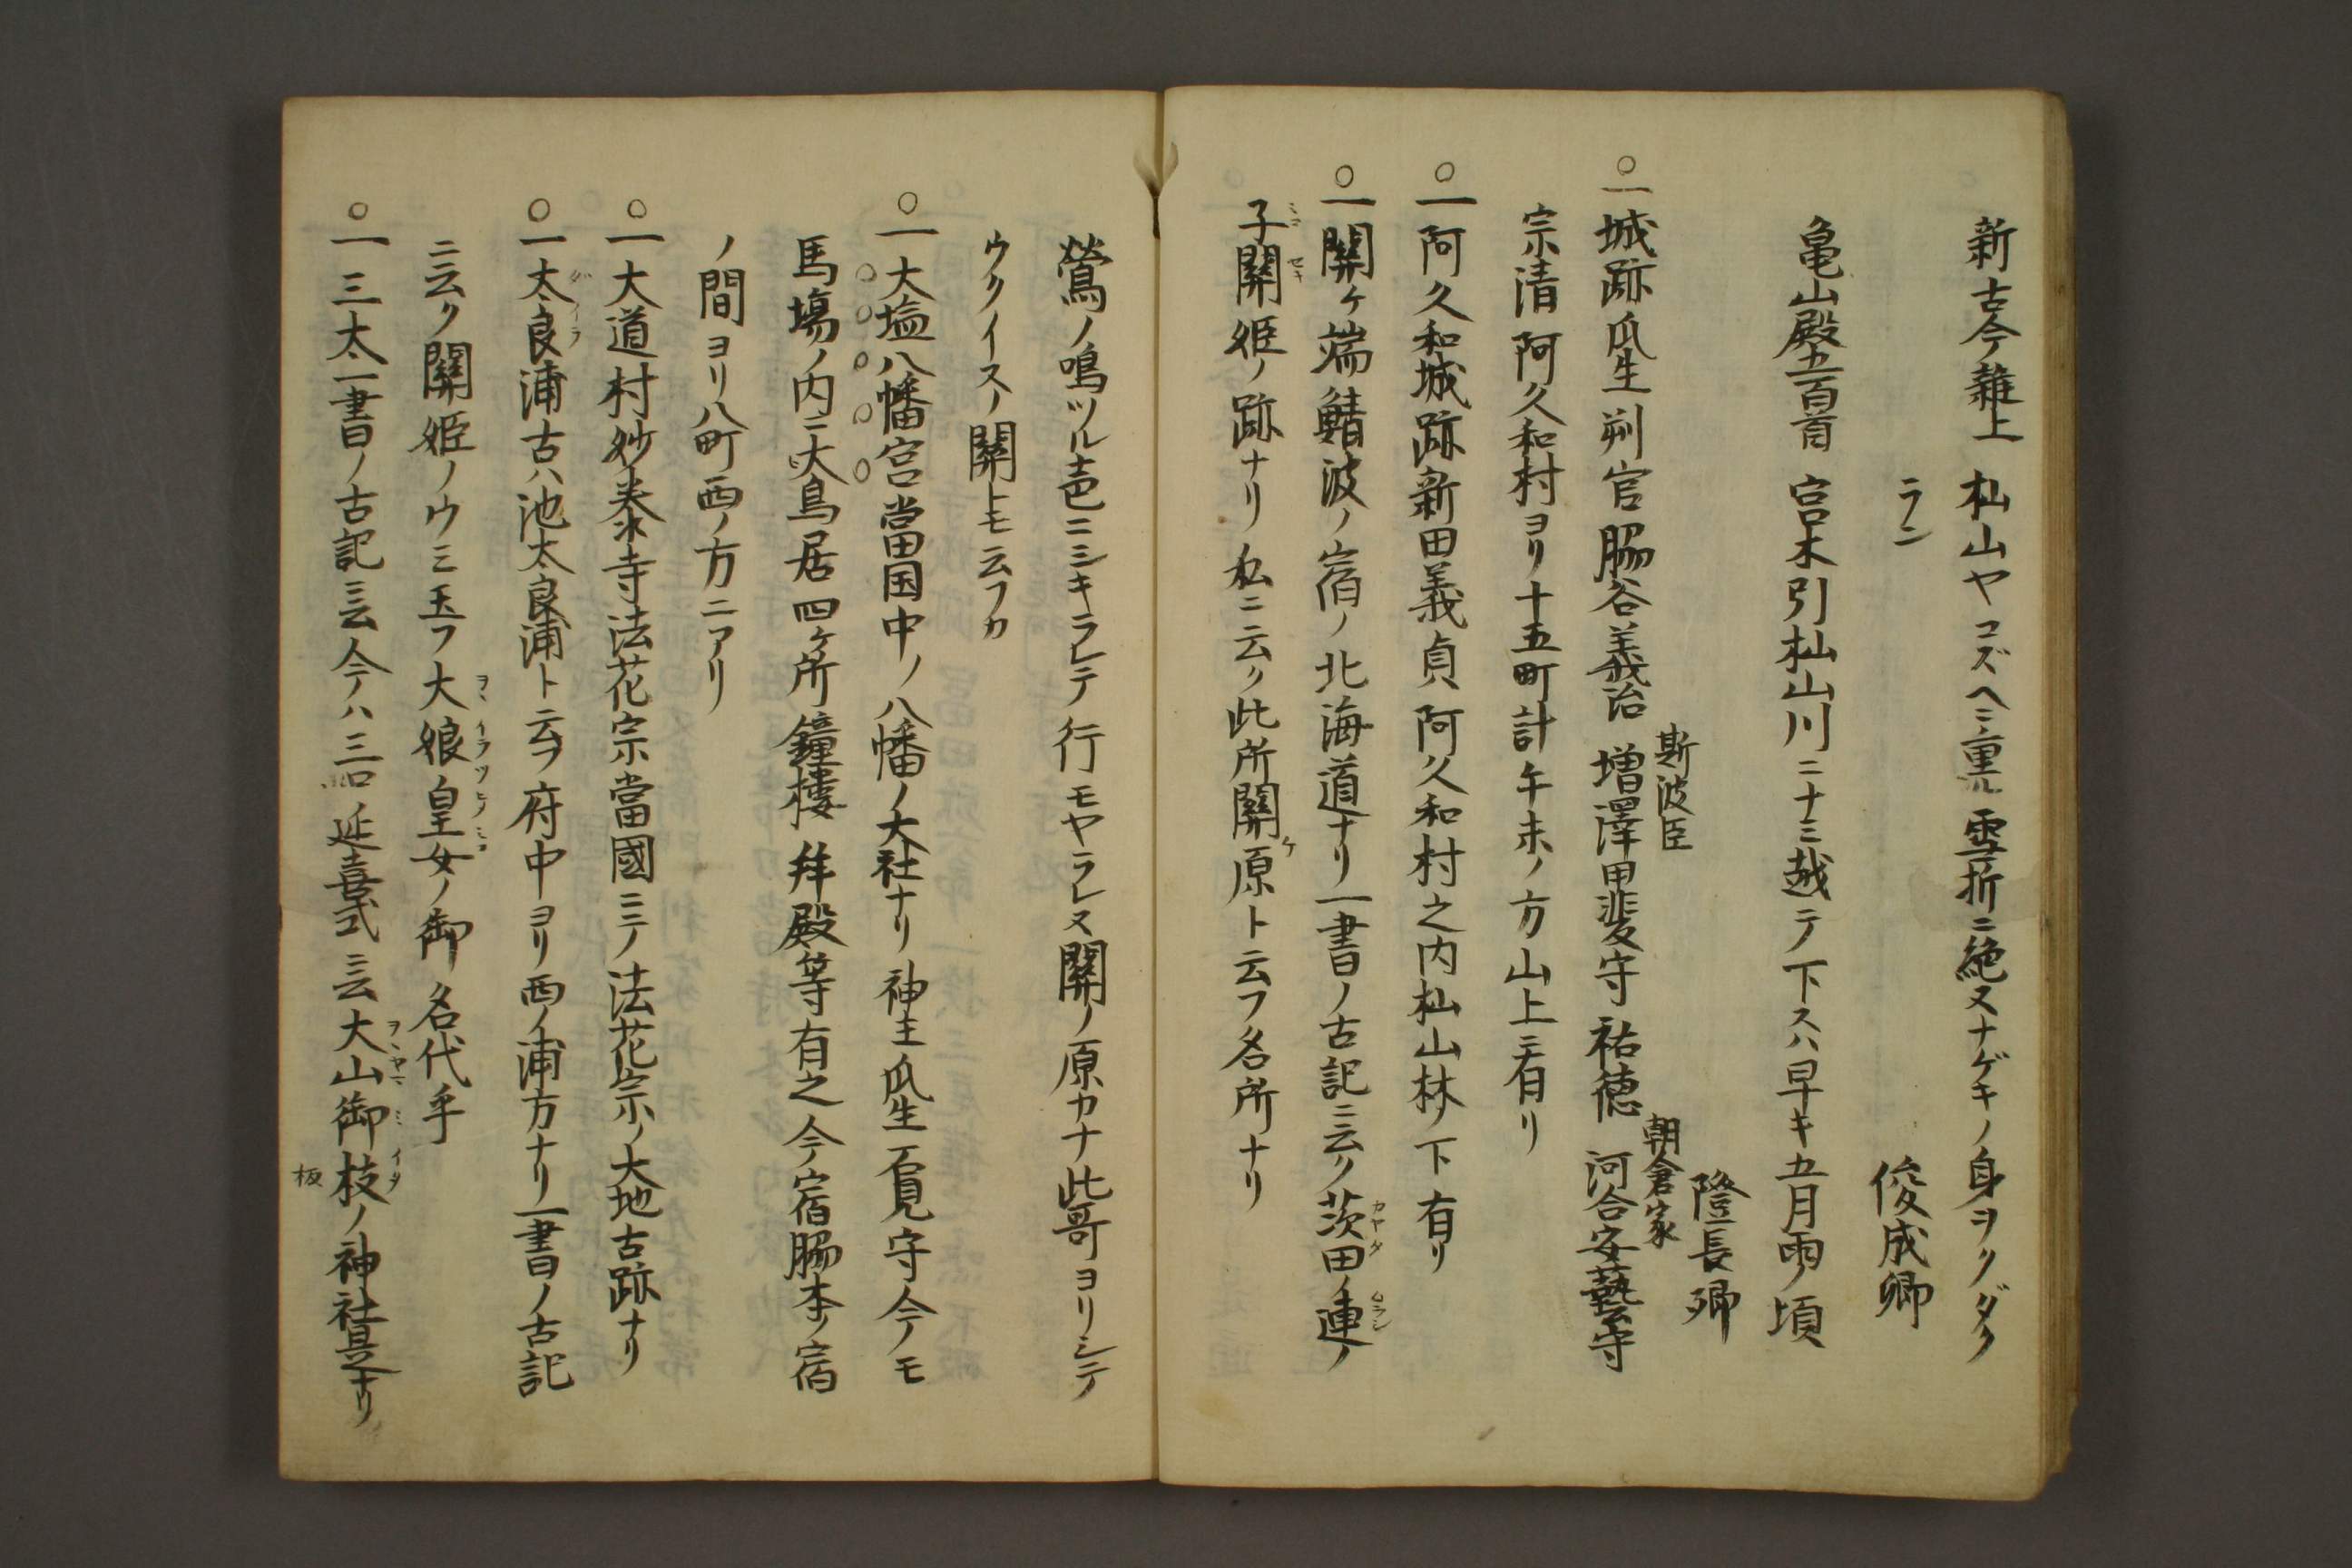 新古今雜上　杣山ヤコズヘニ重ル雪折ニ絶又ナゲキノ身ヲクダク
ラン
俊成卿
亀山殿五百首　宮木引杣山川ニナミ越テ下スハ早キ五月雨ノ頃
隆長卿
〇一城跡瓜生判官脇谷義治　斯波臣増澤甲斐守祐徳　朝倉家河合安藝守
宗清阿久和村ヨリ十五町計午未ノ方山上ニ有リ
〇一阿久和城跡新田義貞阿久和村之内杣山林ノ下有リ
〇一關ヶ端鯖波ノ宿ノ北海道ナリ一書ノ古記ニ云ク茨田ノ連ノ
カヤタ
ムラシ
子關姫ノ跡ナリ私ニ云ク此所關ケ原ト云フ名所ナリ
ミコ
セキ
鶯ノ鳴ツル声ニシキラレテ行モヤラレヌ關ノ原カナ此哥ヨリシテ
ウクイスノ關トモ云フカ
〇一大塩八幡宮當国中ノ八幡ノ大社ナリ神主瓜生石見守今ノモ
馬場ノ内ニ大鳥居四ヶ所鐘樓拜殿等有之今ノ宿脇本ノ宿
ノ間ヨリ八町西ノ方ニアリ
〇一大道村妙泰寺法花宗當國ニテノ法花宗ノ大地古跡ナリ
〇一太良浦古ハ池太良浦ト云フ府中ヨリ西ノ浦方ナリ一書ノ古記
ダイラ
ニ云ク關姫ノウミ玉フ大娘皇女ノ御名代乎
ヲヽイラツヒノミコ
〇一三太一書ノ古記ニ云今ハ三田延喜式ニ云大山御枝ノ神社是ナリ
ヲヽヤマミイタ
板